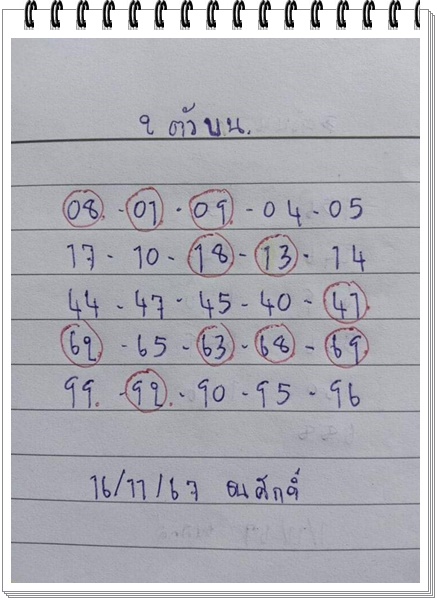 2 ตัวบน.
08 - 01 - 09 - 04 - 05
17 - 10 - 18 - 13 - 14
44 - 47 - 45 - 40 - 41
62 - 65 - 63 - 68 - 69
99 - 92 - 90 - 95 - 96
16/11/67 ธนศักดิ์